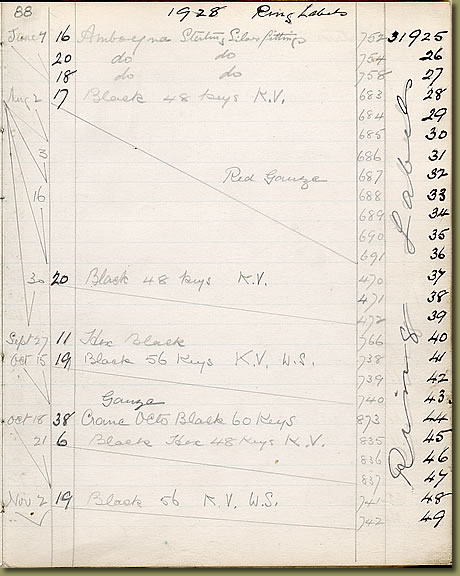 88 1928 Ring Labels
June 7 16 Amboyna Sterling Silver fittings 752 31925
20 do do 754 26
18 do do 758 27
Aug 2 17 Black 48 Keys K.V. 683 28
684 29
3 685 30
686 31
Red Gauze 687 32
16 688 33
689 34
690 35
691 36
30 20 Black 48 Keys K.V. 470 37
471 38
472 39
Sept 27 11 Hex Black 766 40
Oct 15 19 Black 56 Keys K.V. W.S. 738 41
739 42
Gauze 740 43
Oct 18 38 Crane Octo Black 60 Keys 873 44
21 6 Black Hex 48 Keys K.V. 835 45
836 46
837 47
Nov 2 19 Black 56 K.V. W.S. 741 48
742 49
Ring Labels